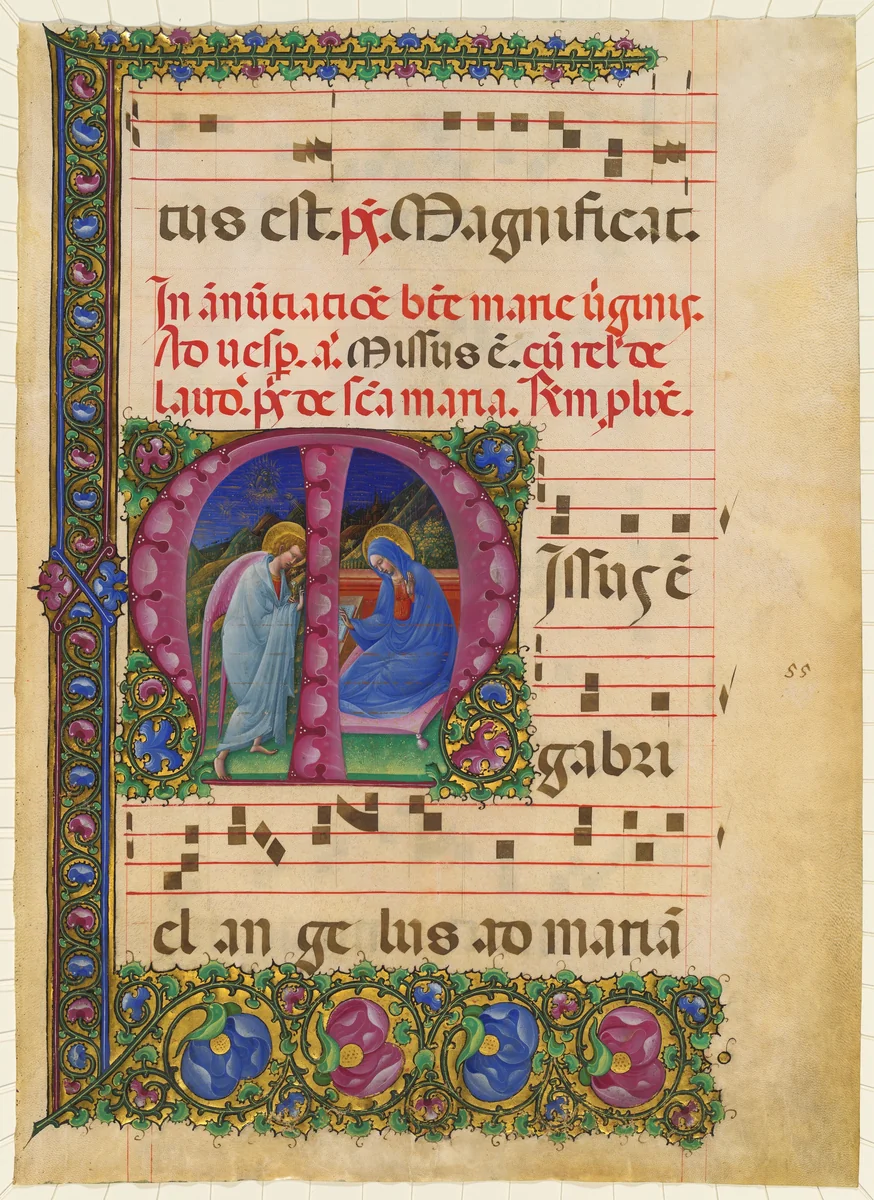 tus est. ps̄. Magnificat.
In ānūtiatiōe bt̄e marie ūginis.
Ad uesp̄. a̅. Missus ē. cū rel' de
laud'. ps̄ de sc̄a maria.
MIssus ē
55
gabri
el an ge lus ad mariā